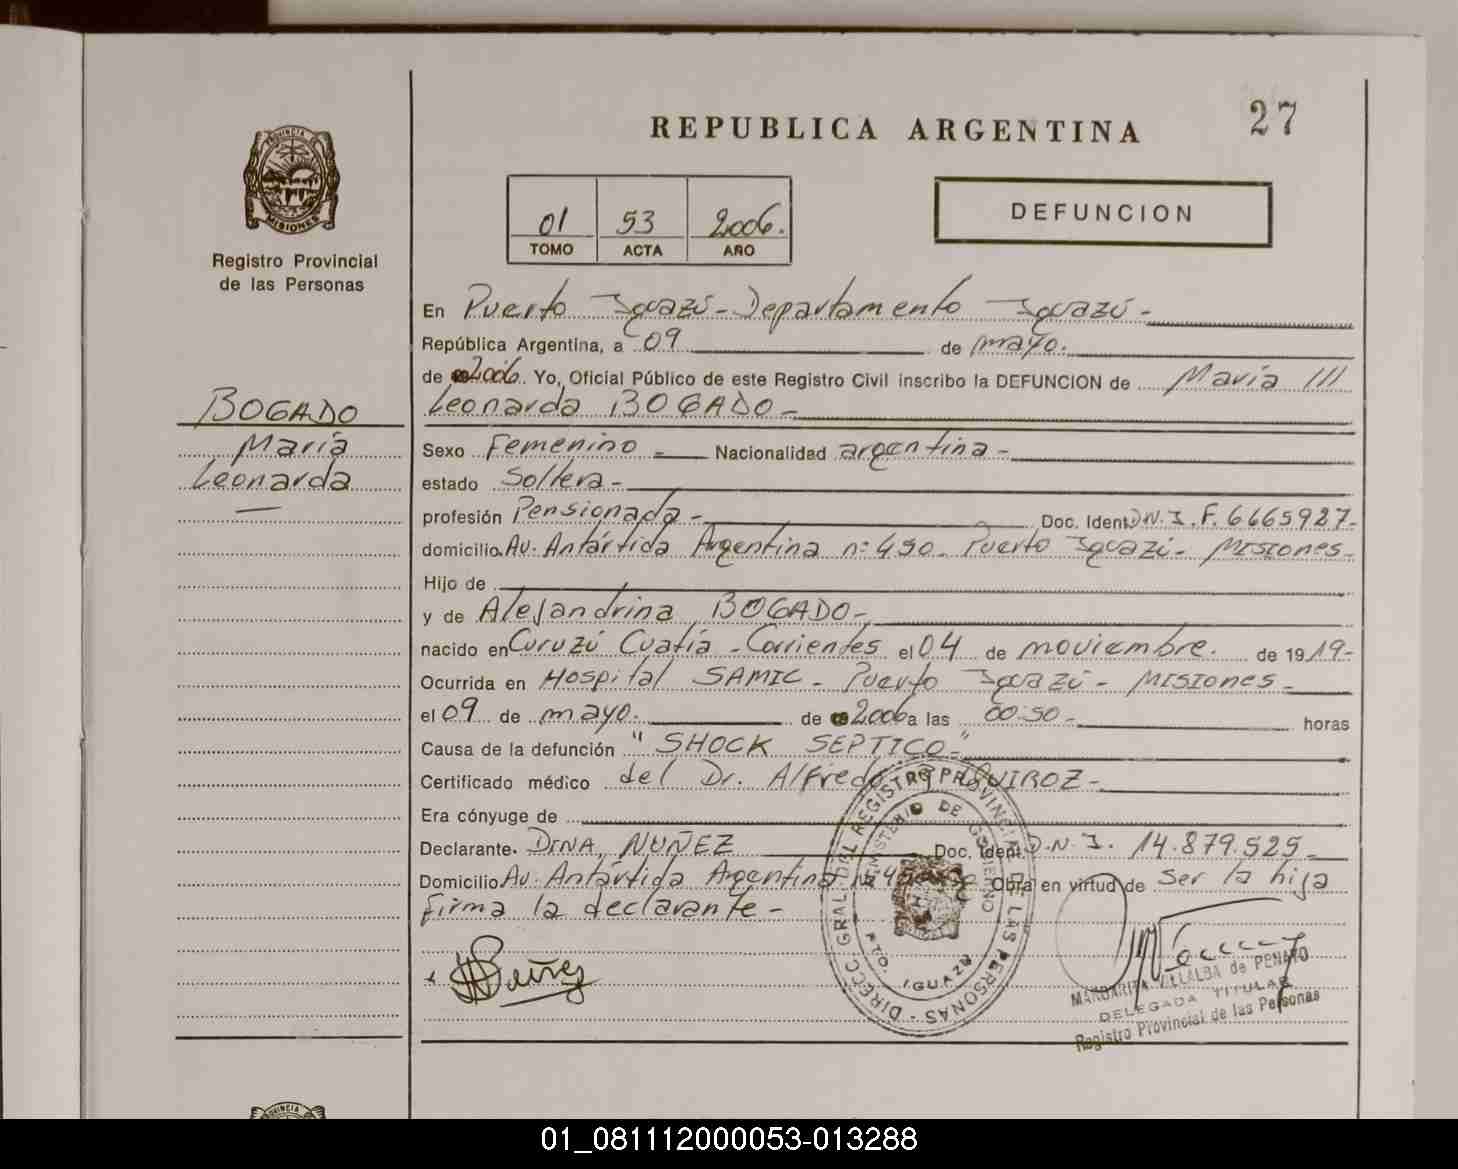 27
REPUBLICA ARGENTINA
PROVINCIA
MISIONES
Registro Provincial
de las Personas
01 53 2006.
TOMO ACTA AÑO
DEFUNCION
BOGADO
María
Leonarda
En Puerto Iguazú - Departamento Iguazú -
República Argentina, a 09 de mayo.
de 2006. Yo, Oficial Público de este Registro Civil inscribo la DEFUNCION de María ///
Leonarda BOGADO -
Sexo Femenino - Nacionalidad argentina -
estado Soltera -
profesión Pensionada - Doc. Ident. D.N.I. F. 6665927-
domicilio Av. Antártida Argentina nº 490 - Puerto Iguazú - Misiones -
Hijo de
y de Alejandrina BOGADO -
nacido en Curuzú Cuatía - Corrientes el 04 de noviembre. de 1919-
Ocurrida en Hospital SAMIC - Puerto Iguazú - Misiones -
el 09 de mayo. de 2006 a las 00:50 - horas
Causa de la defunción "SHOCK SEPTICO -"
Certificado médico del Dr. Alfredo QUIROZ -
Era cónyuge de
Declarante. DINA, NUÑEZ Doc. Ident. D.N.I. 14.879.525 -
Domicilio Av. Antártida Argentina nº Obra en virtud de ser la hija
firma la declarante -
Nuñez
DIRECC. GRAL. DEL REGISTRO PROVINCIAL DE LAS PERSONAS
MINISTERIO DE GOBIERNO
PTO. IGUAZU
MARGARITA VILLALBA de PENAYO
DELEGADA TITULAR
Registro Provincial de las Personas
PROVINCIA
01_081112000053-013288